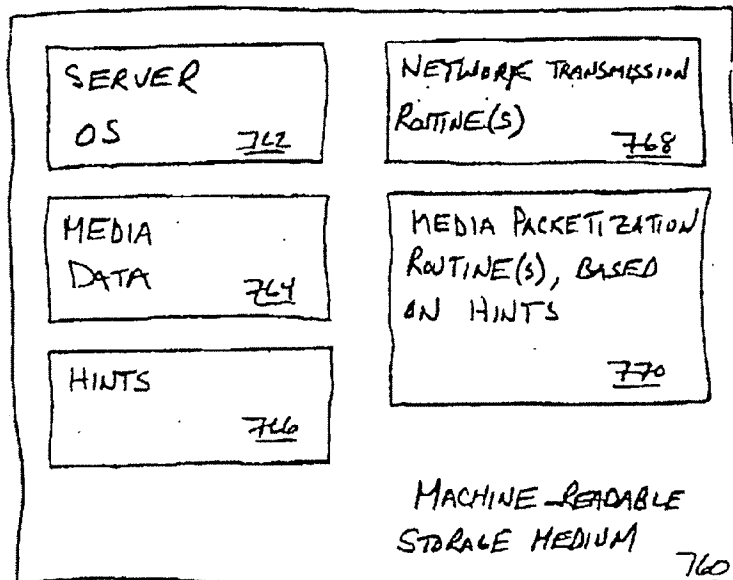 SERVER
OS 762
MEDIA
DATA 764
HINTS
766
NETWORK TRANSMISSION
ROUTINE(S)
768
MEDIA PACKETIZATION
ROUTINE(S), BASED
ON HINTS
770
MACHINE-READABLE
STORAGE MEDIUM
760